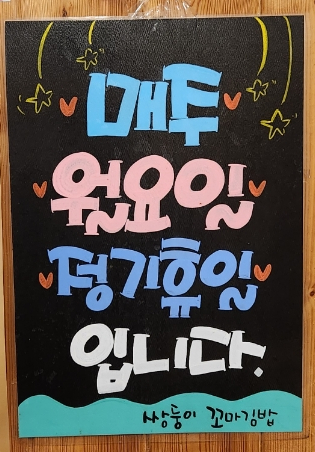 매주
월요일
정기휴일
입니다.
쌍둥이 꼬마김밥